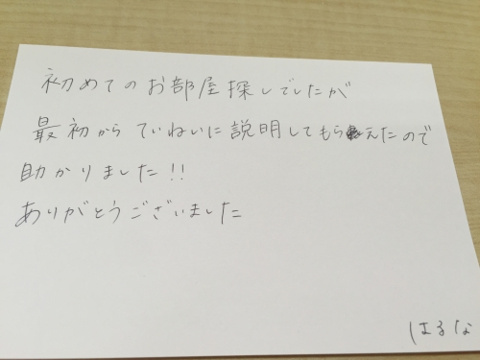 初めてのお部屋探しでしたが
最初からていねいに説明してもらえたので
助かりました!!
ありがとうございました
はるな